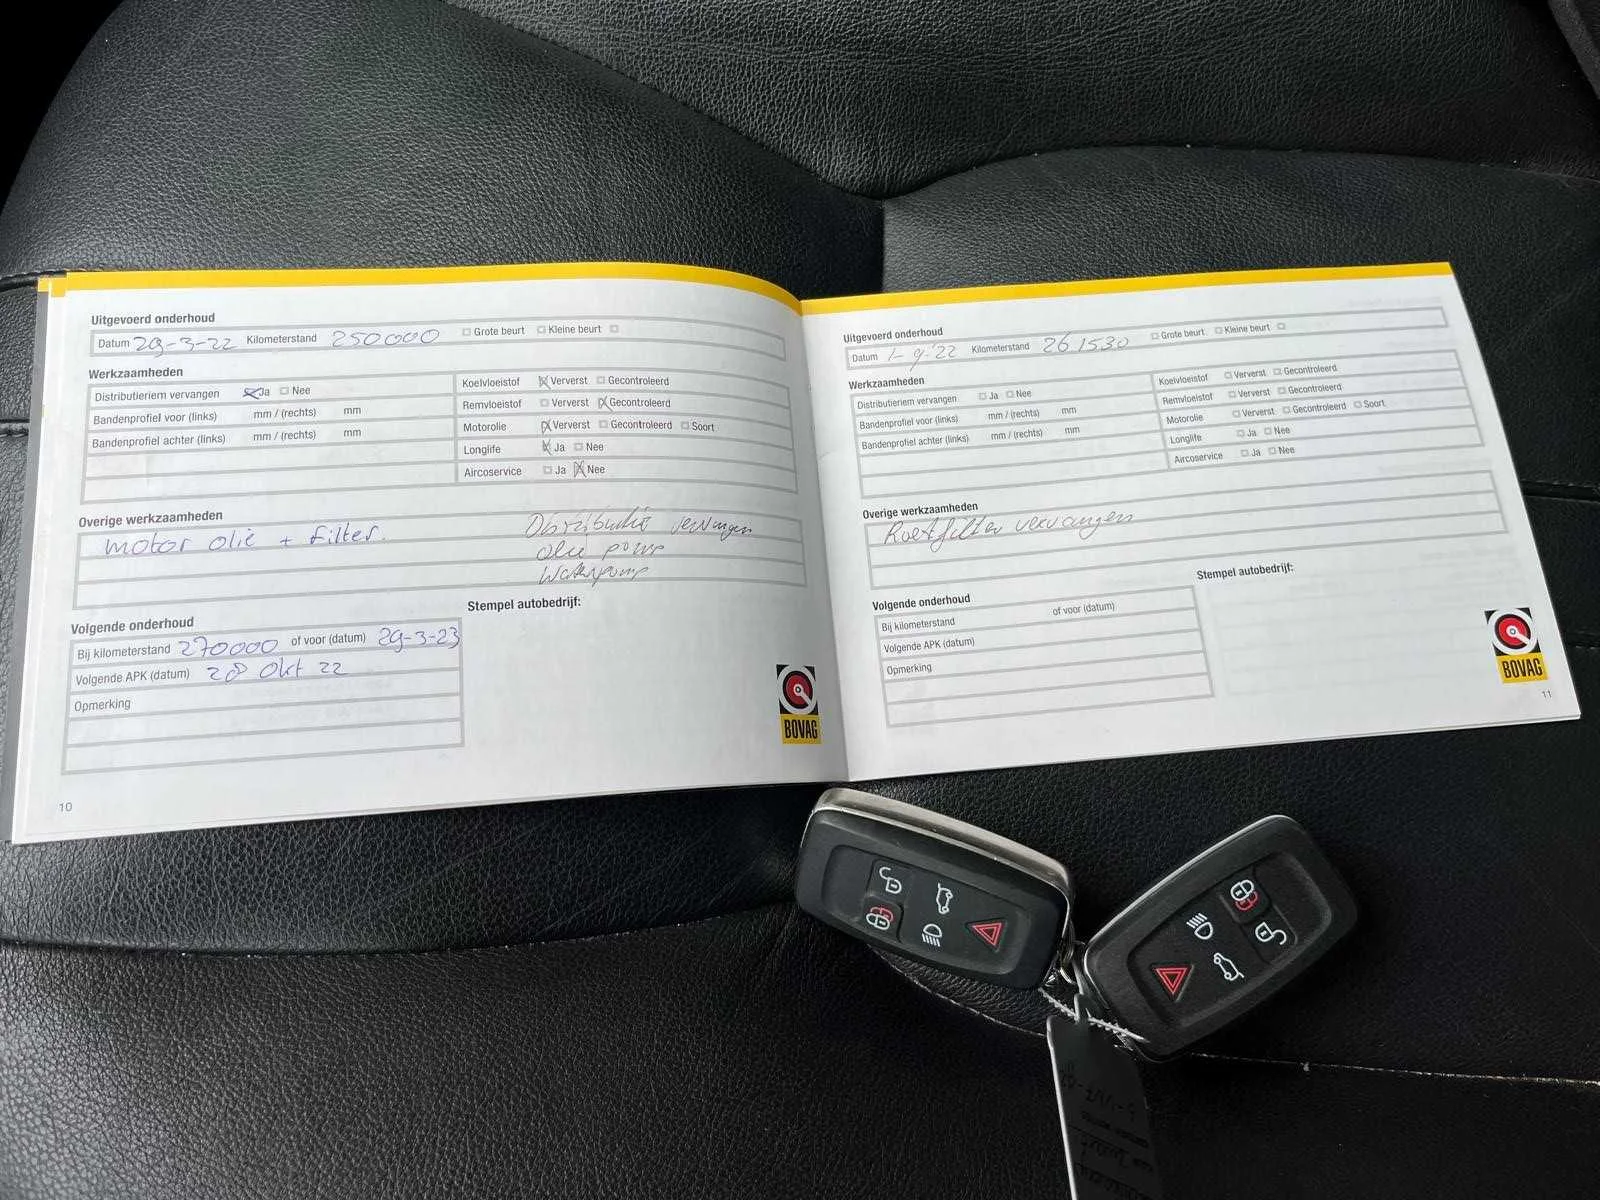 Uitgevoerd onderhoud
Datum 29-3-22 Kilometerstand 250000 Grote beurt Kleine beurt
Werkzaamheden
Distributieriem vervangen Ja Nee
Bandenprofiel voor (links) mm / (rechts) mm
Bandenprofiel achter (links) mm / (rechts) mm
Koelvloeistof Ververst Gecontroleerd
Remvloeistof Ververst Gecontroleerd
Motorolie Ververst Gecontroleerd Soort
Longlife Ja Nee
Aircoservice Ja Nee
Overige werkzaamheden
motor olie + filter.
Distributie vervangen
olie pomp
Waterpomp
Stempel autobedrijf:
Volgende onderhoud
Bij kilometerstand 270000 of voor (datum) 29-3-23
Volgende APK (datum) 28 Okt 22
Opmerking
BOVAG
10
Uitgevoerd onderhoud
Datum 1-9-'22 Kilometerstand 261530 Grote beurt Kleine beurt
Werkzaamheden
Distributieriem vervangen Ja Nee
Bandenprofiel voor (links) mm / (rechts) mm
Bandenprofiel achter (links) mm / (rechts) mm
Koelvloeistof Ververst Gecontroleerd
Remvloeistof Ververst Gecontroleerd
Motorolie Ververst Gecontroleerd Soort
Longlife Ja Nee
Aircoservice Ja Nee
Overige werkzaamheden
Roetfilter vervangen
Stempel autobedrijf:
Volgende onderhoud
Bij kilometerstand of voor (datum)
Volgende APK (datum)
Opmerking
BOVAG
11